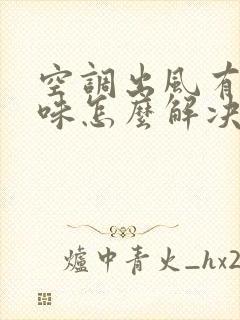 空調出風有
味怎麼解決
爐中青火_hx2